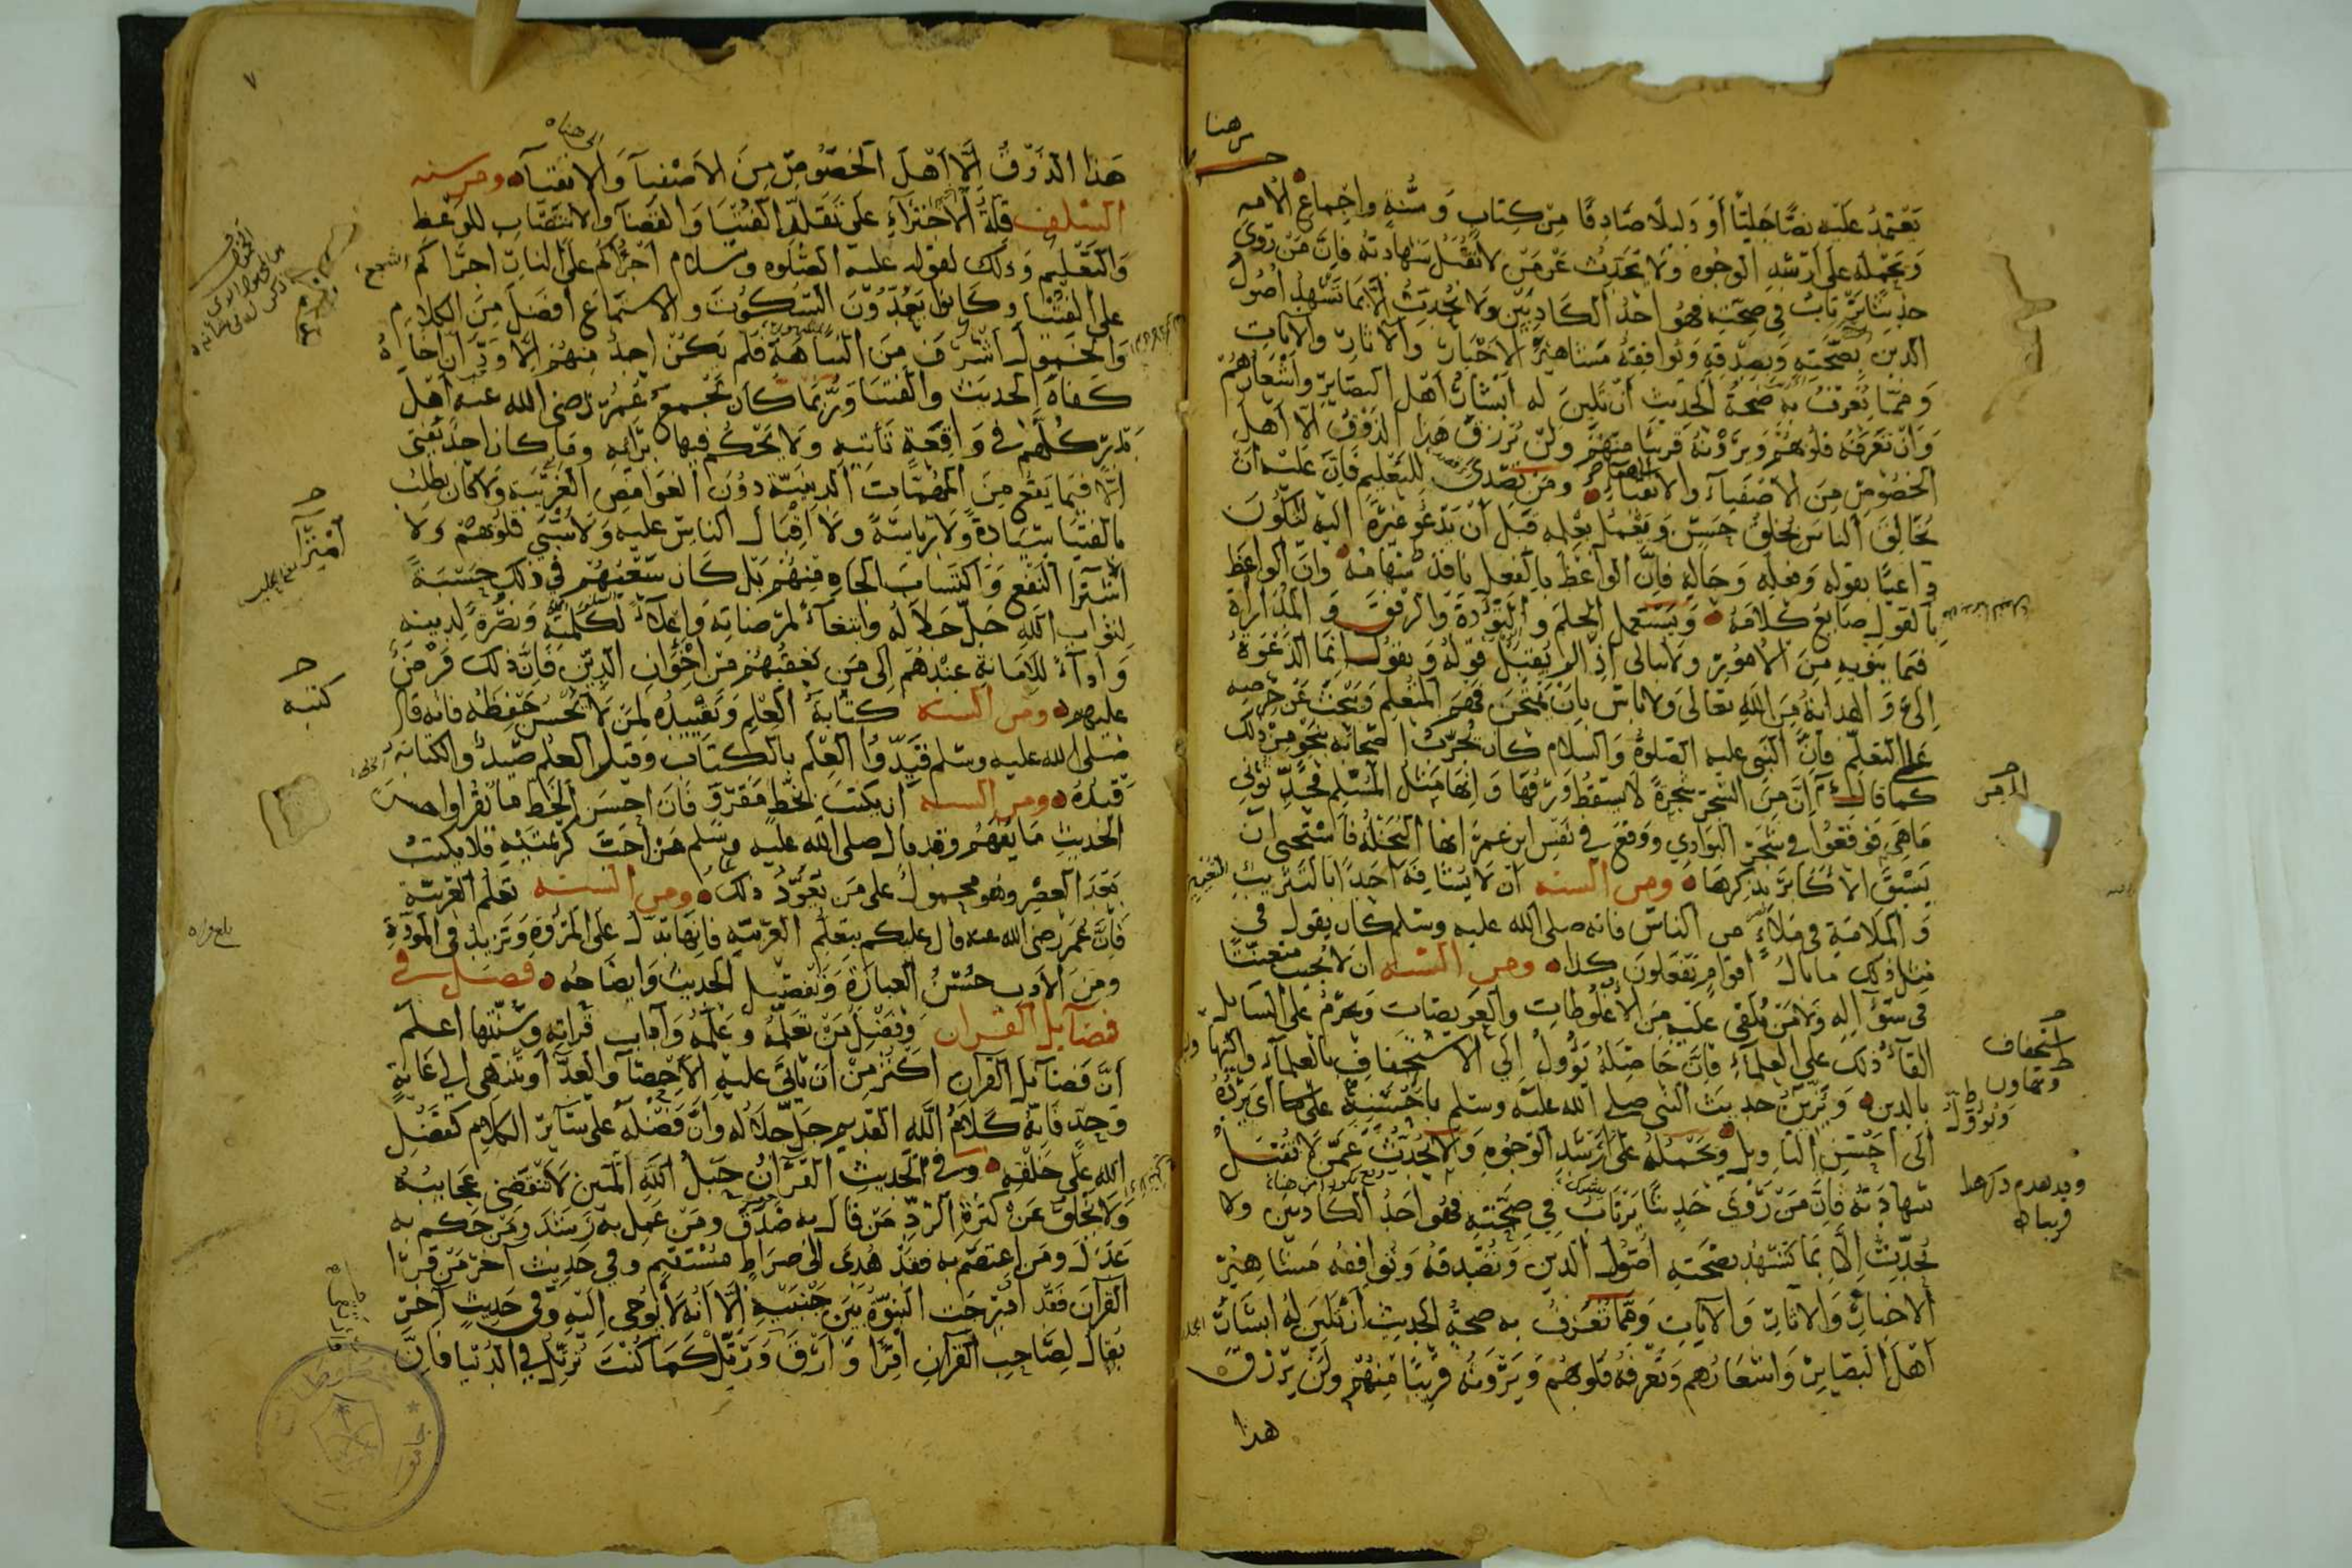 من هنا
يعتمد عليه نصًّا جليًّا أو دليلًا صادقًا من كتاب وسنة واجماع الامه
ويحمله على أرشد الوجوه ولا يحدث عن من لا تقبل شهادته فإن من روى
حديثا يرتاب في صحته فهو احد الكاذبين ولا يحدث الا بما تشهد أصول
الدين بصحته وبصدقه وتوافقه مشاهير الاخبار والآثار والآيات
ومما يعرف به صحة الحديث أن تلين له أبشار أهل البصائر وأشعارهم
وان تعرفه قلوبهم ويرونه قريبا منهم ولن يرزق هذا الذوق الا أهل
الخصوص من الاصفياء والاتقياء ومن تصدى للتعليم فان عليه ان
يخالق الناس بخلق حسن ويعمل بعلمه قبل أن يدعو غيره اليه ليكون
داعيًا بقوله وفعله وحاله فإن الواعظ بالفعل نافذ سهامه وان الواعظ
بالقول ضايع كلامه ويستعمل الحلم والتؤدة والرفق والمداراة
فيما ينويه من الأمور ولا يبالى اذا لم يقبل قوله ويقول انما الدعوة
إلي والهداية من الله تعالى ولا بأس بان يمتحن فهم المتعلم ويبحث عن حرصه
على التعلم فان النبى عليه الصلوة والسلام كان يجرب اصحابه بنحو من ذلك
كما قال ان من الشجر شجرة لا يسقط ورقها وانها مثل المسلم فحدثوني
ما هى فوقعوا في شجر البوادي ووقع في نفس ابن عمر انها النخلة فاستحيى ان
يسبق الاكابر بذكرها ومن السنه ان لا يشافه أحدا بالتثريب
والملامة في ملاء من الناس فانه صلى الله عليه وسلم كان يقول في
مثل ذلك ما بال اقوام يفعلون كذا ومن السنه ان لا يجيب متعنتًا
في سؤاله ولا من يلقي عليه من الاغلوطات والعويصات ويحرم على السايل
القاء ذلك على العلماء فان حاصله يؤول إلى الاستخفاف بالعلماء والتهاون
بالدين وينزل حديث النبى صلى الله عليه وسلم
الى احسن التاويل ويحمله على أرشد الوجوه ولا يحدث عمن لا تقبل
شهادته فان من روى حديثًا يرتاب في صحته فهو احد الكاذبين ولا
يحدث إلا بما تشهد بصحته اصول الدين وتصدقه وتوافقه مشاهير
الاخبار والاثار والآيات ومما تعرف به صحة الحديث أن تلين له ابشار
أهل البصاير واشعارهم وتعرفه قلوبهم ويرونه قريبًا منهم ولن يرزق
هذا
استخفاف
وتهاون
ويؤول
قريبا
٧
الى هنا
هذا الذوق إلا أهل الخصوص من الاصفيآ والاتقيآ ومن سنه
السلف قلة الاجتراء على تقلد الفتيا والقضآ والانتصاب للوعظ
والتعليم وذلك لقوله عليه الصلوه وسلام اجرأكم على النار اجراكم
على الفتيا وكانوا يعدون السكوت والاستماع أفضل من الكلام
والخمول أشرف من النباهة فلم يكن احد منهم إلا ودّ ان اخاه
كفاه الحديث والفتيا وربما كان يجمع عمر رضى الله عنه أهل
بدر كلهم في واقعة تأتيه ولا يحكم فيها برأيه وما كان احد يفتى
إلا فيما يقع من المهمات الدينية دون الغوامض الغريبه ولا كان يطلب
بالفتيا سيادة ولا رياسة ولا اقبال الناس عليه ولا سبي قلوبهم ولا
النفع واكتساب الجاه منهم بل كان سعيهم في ذلك حسبة
لثواب الله جل جلاله وابتغاء لمرضاته وإعلاء لكلمته ونصرة لدينه
وأدآء للامانة عندهم إلى من يعقبهم من اخوان الدين فان ذلك فرض
عليهم ومن السنه كتابة العلم وتقييده لمن لا يحسن حفظه فانه قال
صلى الله عليه وسلم قيدوا العلم بالكتاب وقيل العلم صيد والكتابة
قيده ومن السنه ان يكتب بخط مقرو فان احسن الخط ما يقرا واحسن
الحديث ما يفهم وقد قال صلى الله عليه وسلم من أحب كريمتيه فلا يكتب
بعد العصر وهو محمول على من يعود ذلك ومن السنه تعلم العربية
فان عمر رضى الله عنه قال عليكم بتعلم العربيه فانها تدل على المروة وتزيد في المودة
ومن الأدب حسن العبارة وتفصيل الحديث وايضاحه فصل في
فضايل القران وفضل من تعلمه وعلمه وآداب قراته وسننها اعلم
أن فضايل القرآن أكثر من ان يأتي عليه الاحصآ والعد أو ينتهى الى غاية
وحد فانه كلام الله القديم جل جلاله وان فضله على ساير الكلام كفضل
الله على خلقه وفي الحديث القرآن حبل الله المتين لا تنقضى عجايبه
ولا يخلق عن كثرة الرد من قال به صدق ومن عمل به رشد ومن حكم به
عدل ومن اعتصم به فقد هدى الى صراط مستقيم وفي حديث آخر من قرا
القرآن فقد أدرجت النبوة بين جنبيه إلا أنه لا يوحى اليه وفي حديث آخر
يقال لصاحب القرآن اقرا وارق ورتل كما كنت ترتل في الدنيا فان
كتبه